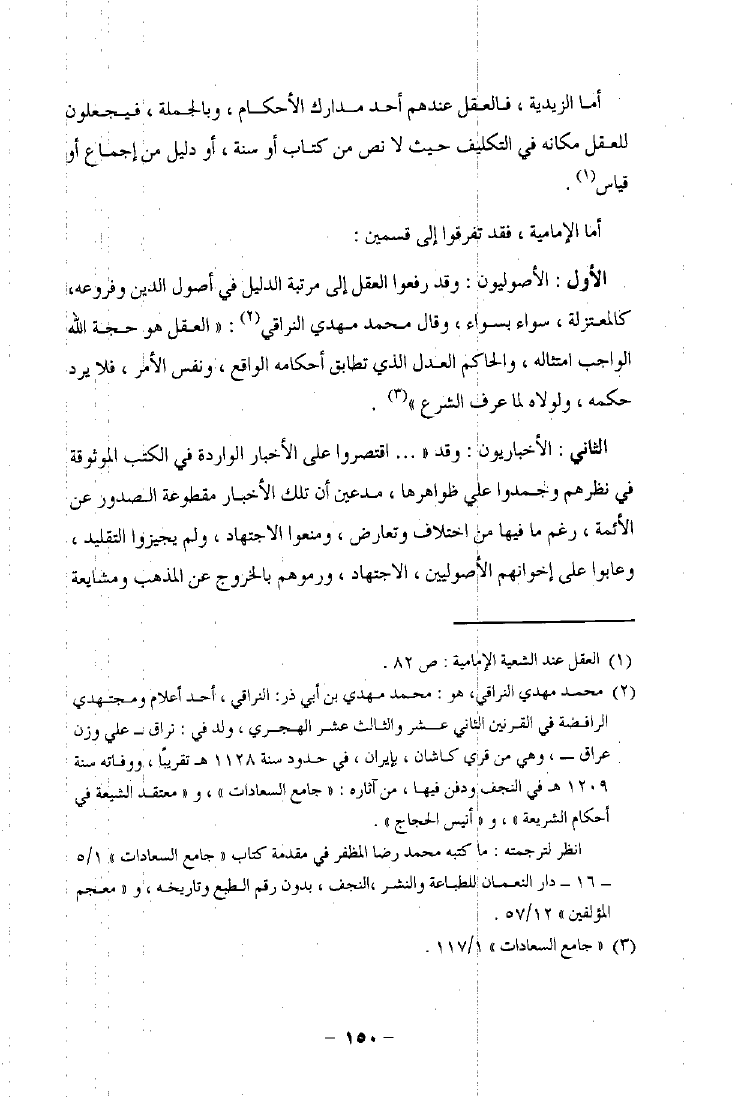 أما الزيدية ، فالعقل عندهم أحد مدارك الأحكام ، وبالجملة ، فيجعلون
للعقل مكانه في التكليف حيث لا نص من كتاب أو سنة ، أو دليل من إجماع أو
قياس(١) .
أما الإمامية ، فقد تفرقوا إلى قسمين :
الأول : الأصوليون : وقد رفعوا العقل إلى مرتبة الدليل في أصول الدين وفروعه،
كالمعتزلة ، سواء بسواء ، وقال محمد مهدي النراقي(٢) : « العقل هو حجة الله
الواجب امتثاله ، والحاكم العدل الذي تطابق أحكامه الواقع ، ونفس الأمر ، فلا يرد
حكمه ، ولولاه لما عرف الشرع »(٣) .
الثاني : الأخباريون : وقد « ... اقتصروا على الأخبار الواردة في الكتب الموثوقة
في نظرهم وجمدوا علي ظواهرها ، مدعين أن تلك الأخبار مقطوعة الصدور عن
الأئمة ، رغم ما فيها من اختلاف وتعارض ، ومنعوا الاجتهاد ، ولم يجيزوا التقليد ،
وعابوا على إخوانهم الأصوليين ، الاجتهاد ، ورموهم بالخروج عن المذهب ومشايعة
(١) العقل عند الشعية الإمامية : ص ٨٢ .
(٢) محمد مهدي النراقي، هو : محمد مهدي بن أبي ذر: النراقي ، أحد أعلام ومجتهدي
الرافضة في القرنين الثاني عشر والثالث عشر الهجري ، ولد في : نراق ــ علي وزن
عراق ــ ، وهي من قري كاشان ، بإيران ، في حدود سنة ١١٢٨ هـ تقريبًا ، ووفاته سنة
١٢٠٩ هـ في النجف ودفن فيها ، من آثاره : « جامع السعادات » ، و « معتقد الشيعة في
أحكام الشريعة » ، و « أنيس الحجاج » .
انظر لترجمته : ما كتبه محمد رضا المظفر في مقدمة كتاب « جامع السعادات » ٥/١
ــ ١٦ ــ دار النعمان للطباعة والنشر ،النجف ، بدون رقم الطبع وتاريخه ، و « معجم
المؤلفين » ٥٧/١٢ .
(٣) « جامع السعادات » ١١٧/١ .
- ١٥٠ -